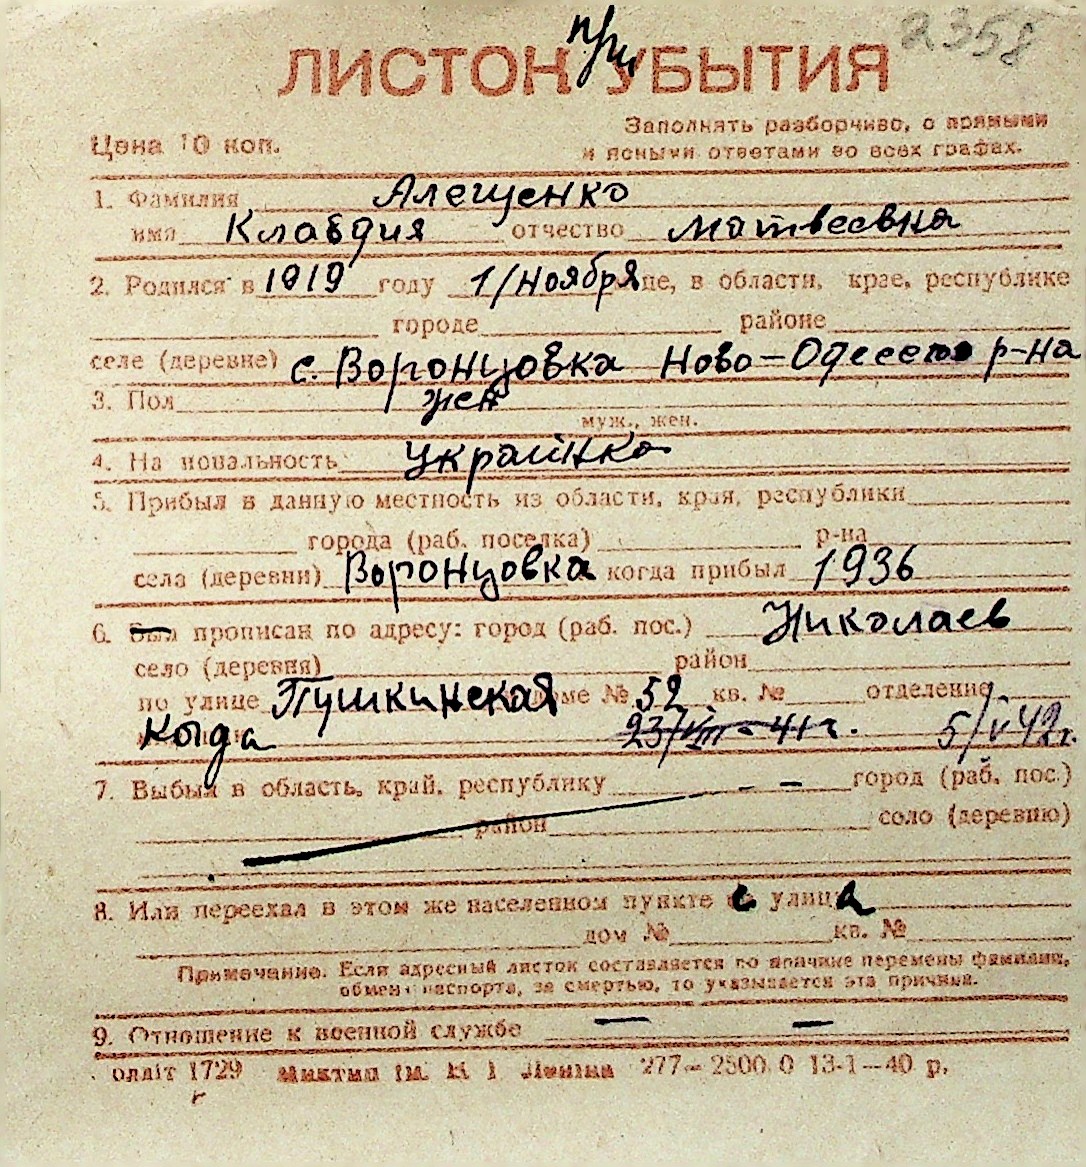 2358
ЛИСТОК при УБЫТИЯ
Цена 10 коп.
Заполнять разборчиво, с прямыми
и ясными ответами во всех графах.
1. Фамилия Алещенко
имя Клавдия отчество Матвеевна
2. Родился в 1919 году 1/ноября це, в области, крае, республике
городе районе
селе (деревне) с. Воронцовка Ново-Одесского р-на
3. Пол жен
муж., жен.
4. На иональность украинка
5. Прибыл в данную местность из области, края, республики
города (раб. поселка) р-на
села (деревни) Воронцовка когда прибыл 1936
6. Был прописан по адресу: город (раб. пос.) Николаев
село (деревня) район
по улице Пушкинская доме № 52 кв. № отделение
Когда 23/VIII-41г. 5/V 42г.
7. Выбыл в область, край, республику — город (раб. пос.)
район село (деревню)
8. Или переехал в этом же населенном пункте с улица
дом № кв. №
Примечание. Если адресный листок составляется по причине перемены фамилии,
обмена паспорта, за смертью, то указывается эта причина.
9. Отношение к военной службе — —
олліт 1729 Ім. В І Леніна 277—2500.0 13-1—40 р.